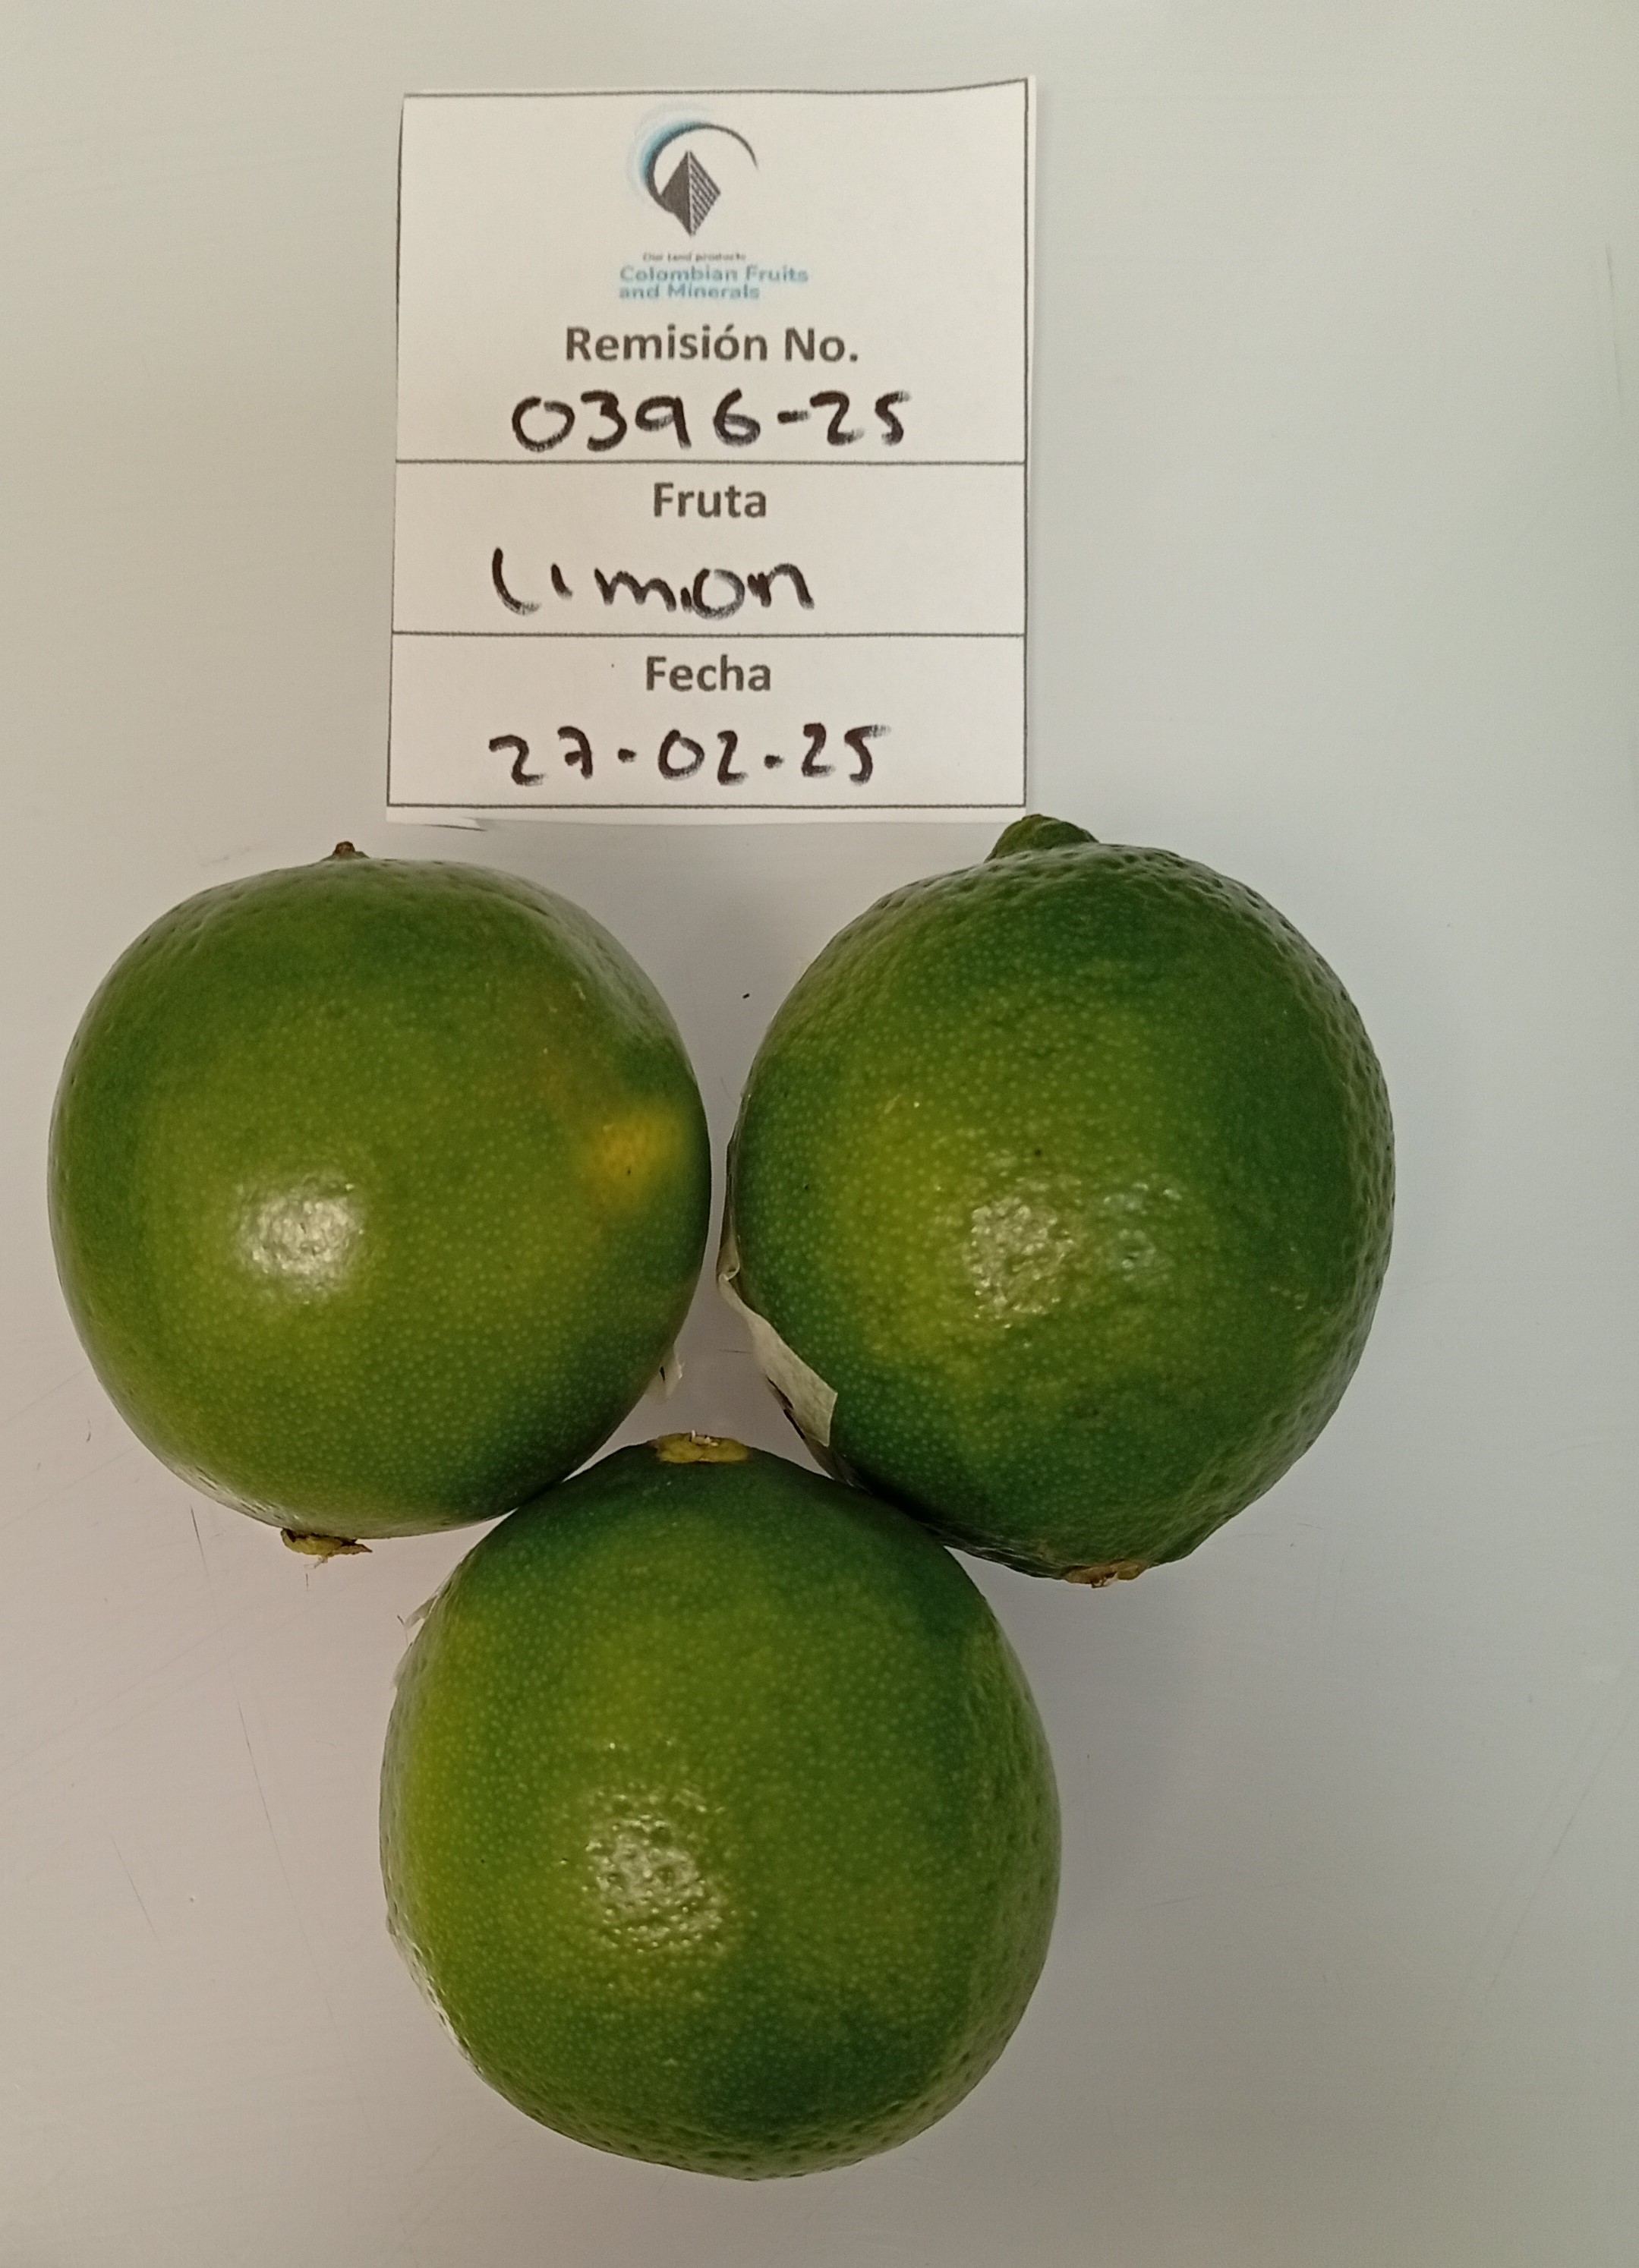 Our land products
Colombian Fruits
and Minerals
Remisión No.
0396-25
Fruta
Limon
Fecha
27.02.25